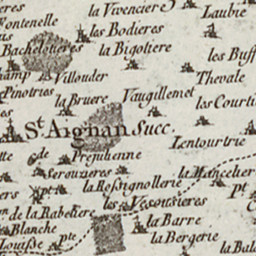 la Vivenciere
Laubie
Fontenelle
les Bodieres
Bachelotieres
la Bigotiere
les Buff
hamp
Villouder
Thevale
Pinotries
la Bruere
Vaugillemet
les Courti
St. Aignan Succ.
Lentourtrie
Prejuhenne
Serouzieres
la Mancelier
la Rossignollerie
Pt
les Vesousieres
de la Rabetiere
la Barre
Blanche
la Bergerie
Louisse
pte
la Bal